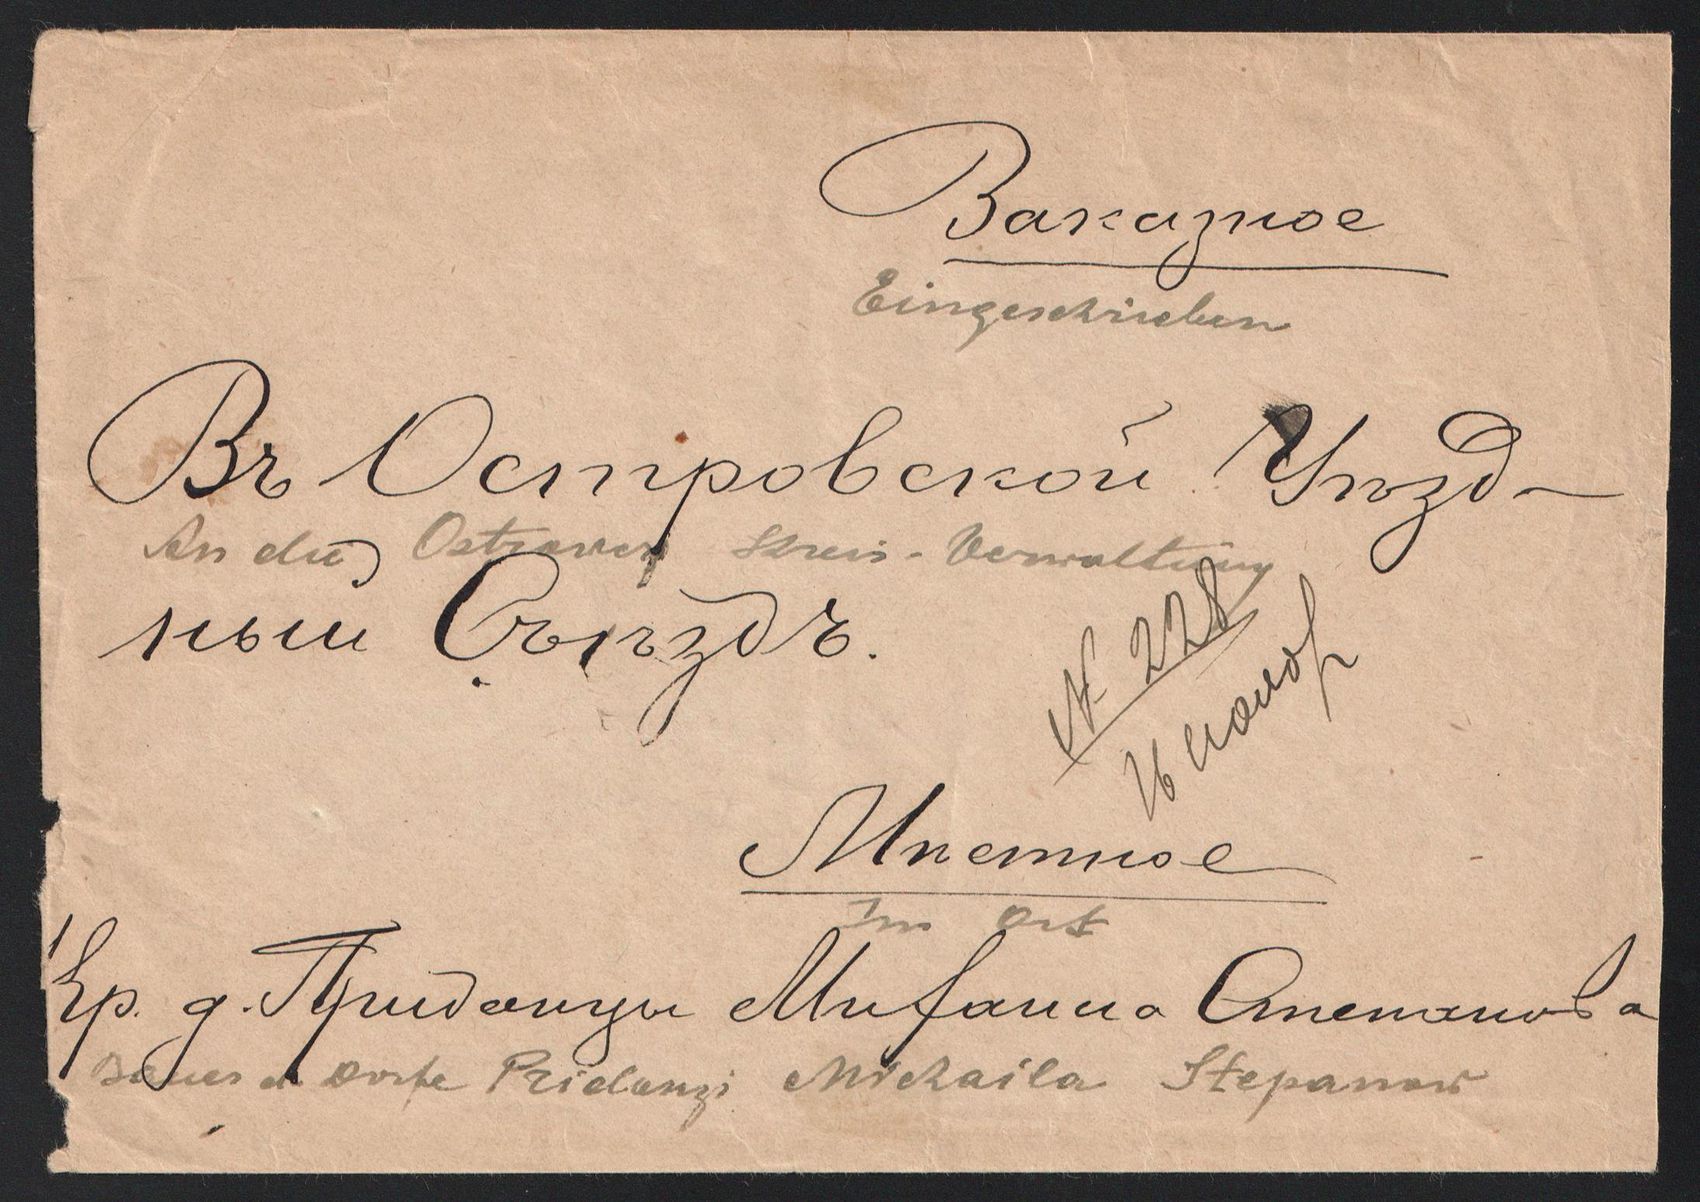 Заказное
Eingeschrieben
Въ Островской Уѣзд-
An die Ostrower Kreis-Verwaltung
ный Съѣздъ.
№ 228
16 нояб
Мѣстное
Im Ort
Кр. д. Приданцы Михаила Степанова
Bauer d. Dorfe Pridanzi Michaila Stepanow